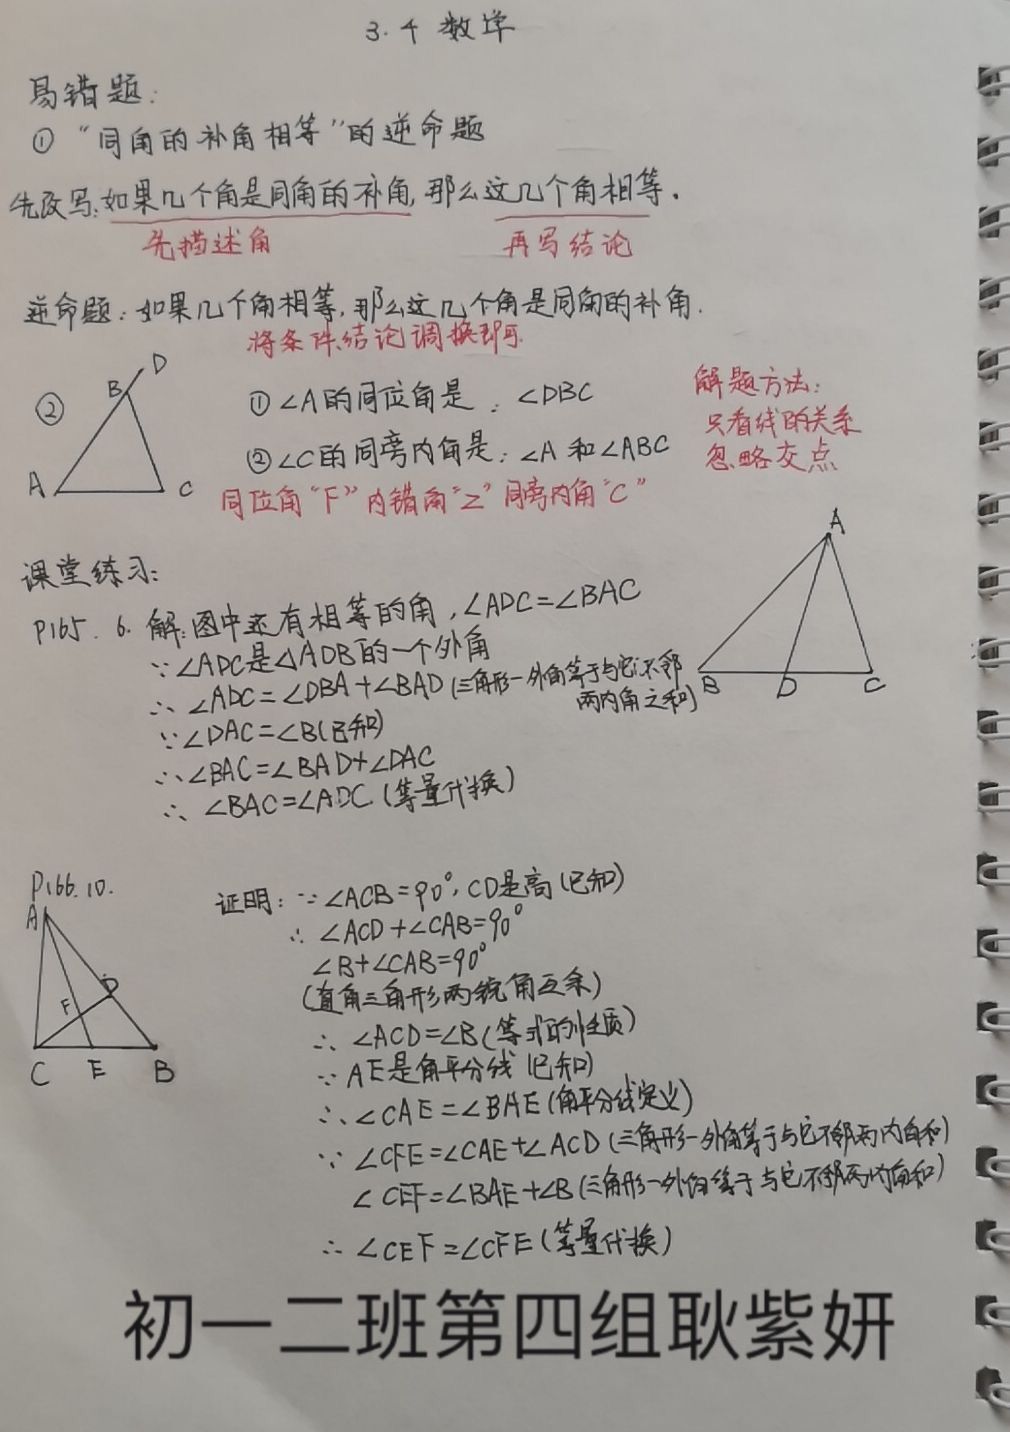 3.4 数学
易错题:
① “同角的补角相等”的逆命题
先改写:如果几个角是同角的补角,那么这几个角相等.
先描述角 再写结论
逆命题:如果几个角相等,那么这几个角是同角的补角.
将条件结论调换即可.
②
D
B
A
C
① ∠A的同位角是:∠DBC
② ∠C的同旁内角是:∠A和∠ABC
同位角“F”内错角“Z”同旁内角“C”
解题方法:
只看线的关系
忽略交点
课堂练习:
P165. 6. 解:图中还有相等的角,∠ADC=∠BAC
∵∠ADC是△ADB的一个外角
∴ ∠ADC=∠DBA+∠BAD(三角形一外角等于与它不邻
两内角之和)
∵∠DAC=∠B(已知)
∴∠BAC=∠BAD+∠DAC
∴ ∠BAC=∠ADC.(等量代换)
A
B
D
C
P166.10.
A
D
F
C
E
B
证明:∵∠ACB=90°,CD是高(已知)
∴ ∠ACD+∠CAB=90°
∠B+∠CAB=90°
(直角三角形两锐角互余)
∴ ∠ACD=∠B(等式的性质)
∵ AE是角平分线(已知)
∴∠CAE=∠BAE(角平分线定义)
∵ ∠CFE=∠CAE+∠ACD(三角形一外角等于与它不邻两内角和)
∠CEF=∠BAE+∠B(三角形一外角等于与它不邻两内角和)
∴ ∠CEF=∠CFE(等量代换)
初一二班第四组耿紫妍